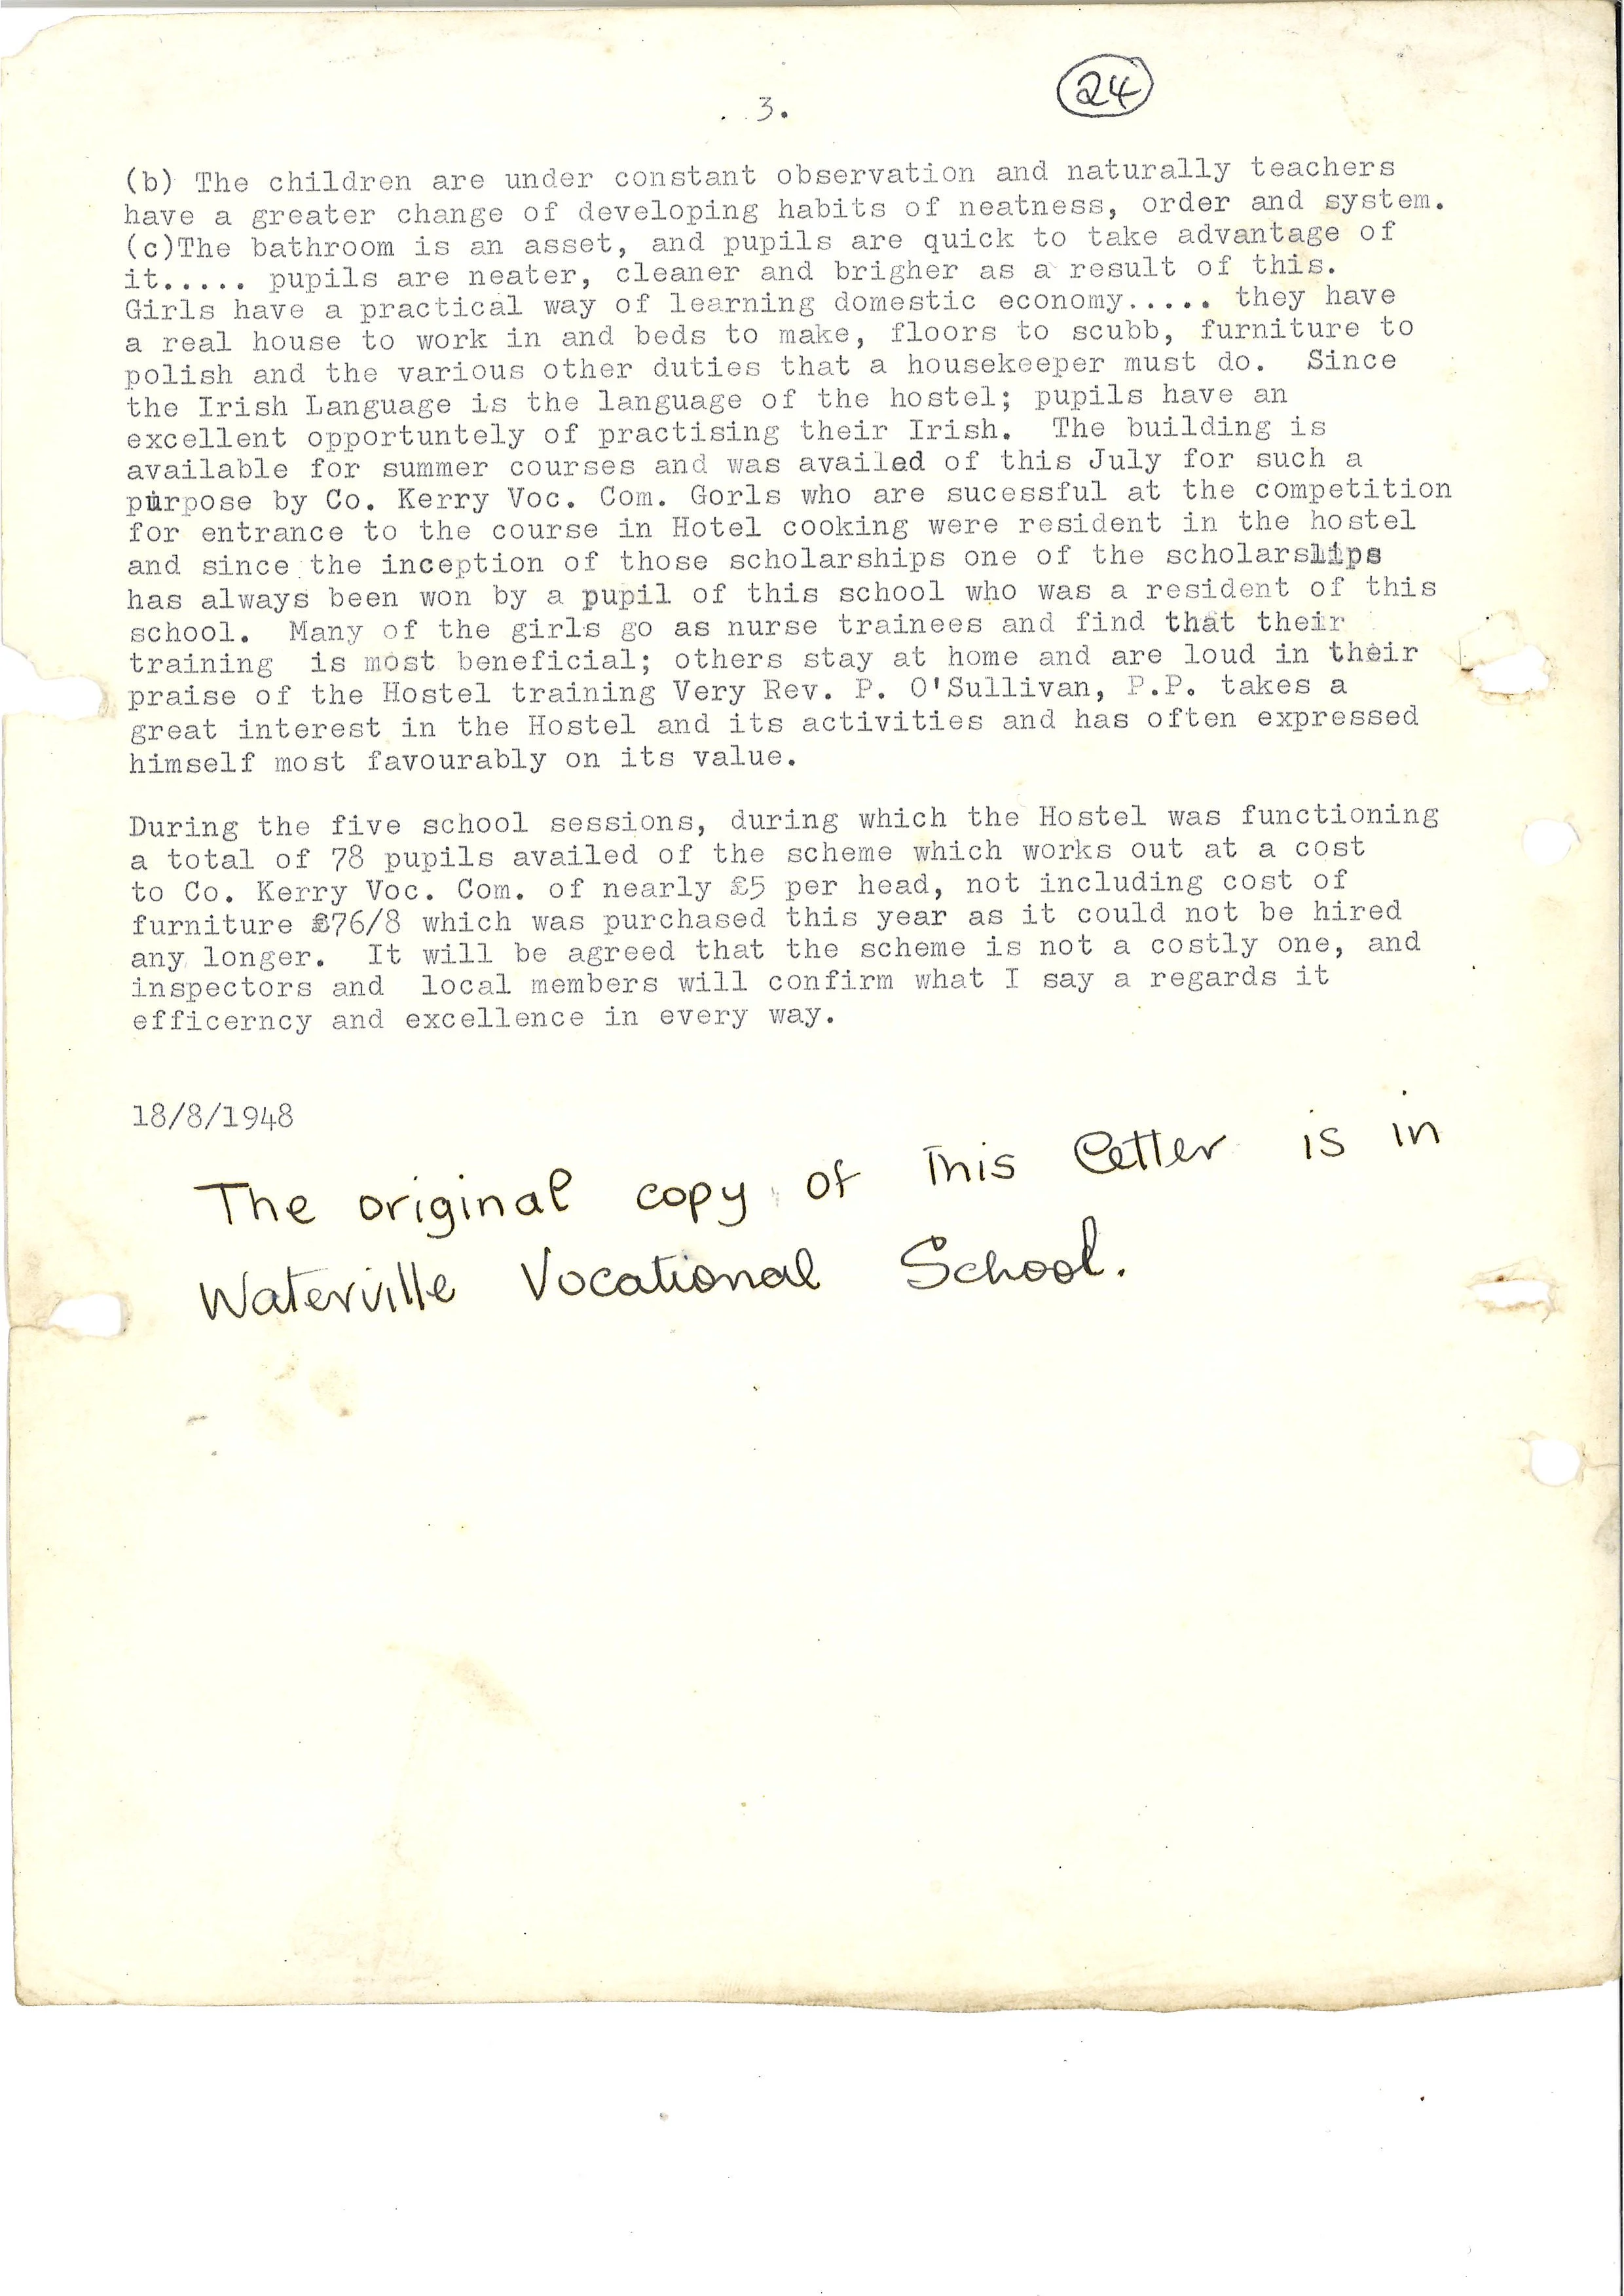 3.
24
(b) The children are under constant observation and naturally teachers
have a greater change of developing habits of neatness, order and system.
(c)The bathroom is an asset, and pupils are quick to take advantage of
it..... pupils are neater, cleaner and brigher as a result of this.
Girls have a practical way of learning domestic economy..... they have
a real house to work in and beds to make, floors to scubb, furniture to
polish and the various other duties that a housekeeper must do.  Since
the Irish Language is the language of the hostel; pupils have an
excellent opportuntely of practising their Irish.  The building is
available for summer courses and was availed of this July for such a
purpose by Co. Kerry Voc. Com. Gorls who are sucessful at the competition
for entrance to the course in Hotel cooking were resident in the hostel
and since the inception of those scholarships one of the scholarslips
has always been won by a pupil of this school who was a resident of this
school.  Many of the girls go as nurse trainees and find that their
training  is most beneficial; others stay at home and are loud in their
praise of the Hostel training Very Rev. P. O'Sullivan, P.P. takes a
great interest in the Hostel and its activities and has often expressed
himself most favourably on its value.
During the five school sessions, during which the Hostel was functioning
a total of 78 pupils availed of the scheme which works out at a cost
to Co. Kerry Voc. Com. of nearly £5 per head, not including cost of
furniture £76/8 which was purchased this year as it could not be hired
any longer.  It will be agreed that the scheme is not a costly one, and
inspectors and  local members will confirm what I say a regards it
efficerncy and excellence in every way.
18/8/1948
The original copy of This letter is in
Waterville Vocational School.